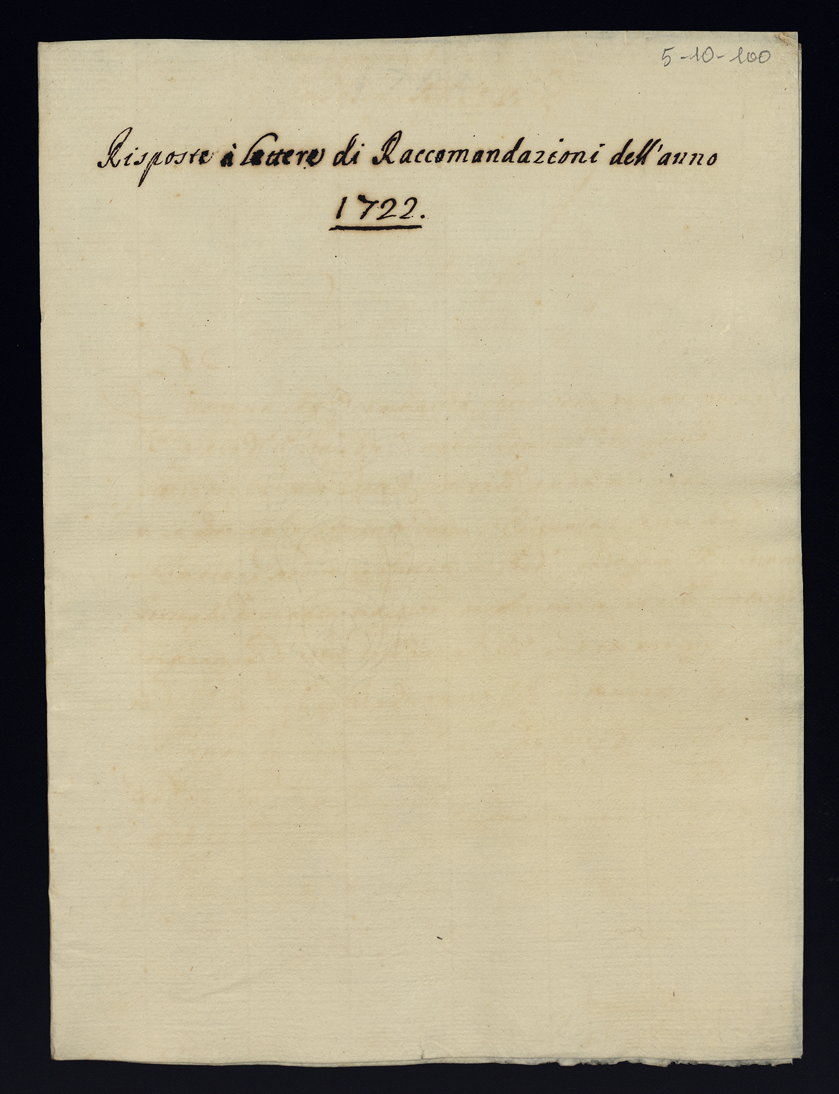 5-10-100
Risposte à lettere di Raccomandazioni dell'anno
1722.